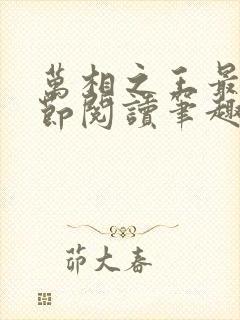 萬相之王最
節閱讀筆趣
茆大春